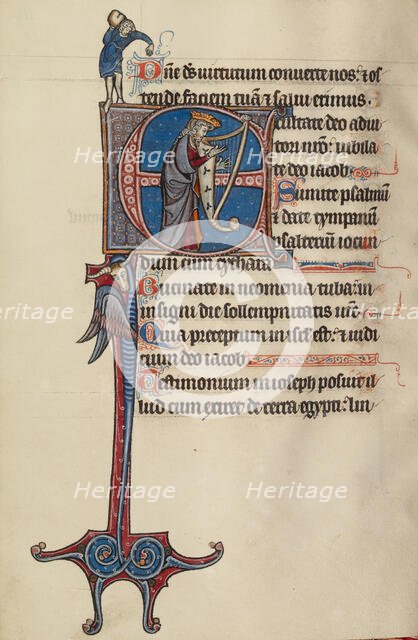 Dñe ds virtutum converte nos: & os
tende faciem tuā & salvi erimus.
Exultate deo adiu
tori nr̄o: iubila
te deo iacob.
Sumite psalmū
& date tympanū
psalterium iocun
dum cum cythara
Bucinate in neomenia tuba: in
insigni die sollempnitatis
Quia preceptum in isrł est: & iudi
cium deo iacob
Testimonium in ioseph posuit il
lud cum exiret de terra egypti: lin
Heritage
Heritage
Heritage
Heritage
Heritage
Heritage